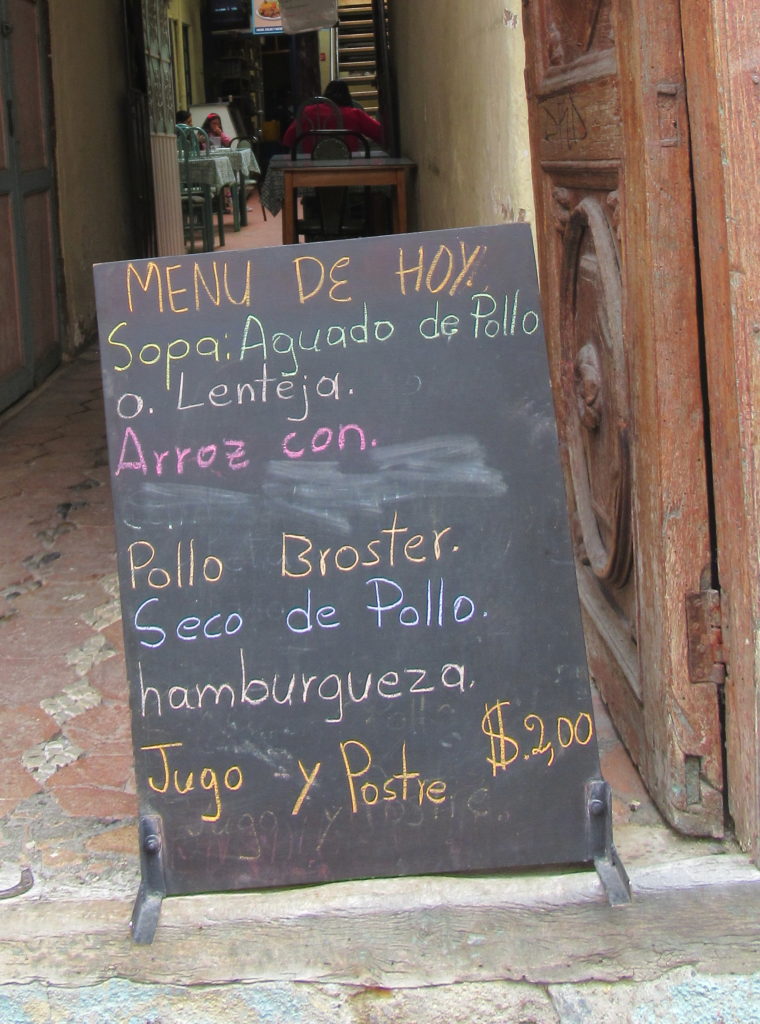 MENU DE HOY.
Sopa: Aguado de Pollo
o. Lenteja.
Arroz con.
Pollo Broster.
Seco de Pollo.
hamburgueza.
$.2,00
Jugo y Postre.
Jugo y Postre.